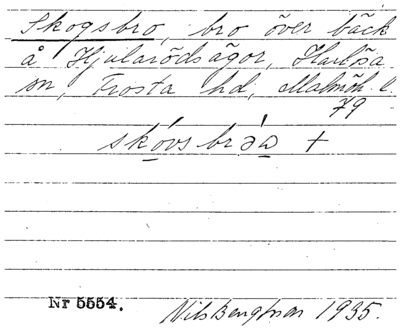 Skogsbro, bro över bäck
å Hjularödsägor, Harlösa
sn, Frosta hd, Malmöh. l.
79
skóvsbrəa +
Nr 5554. Nils Bengtsson 1935.